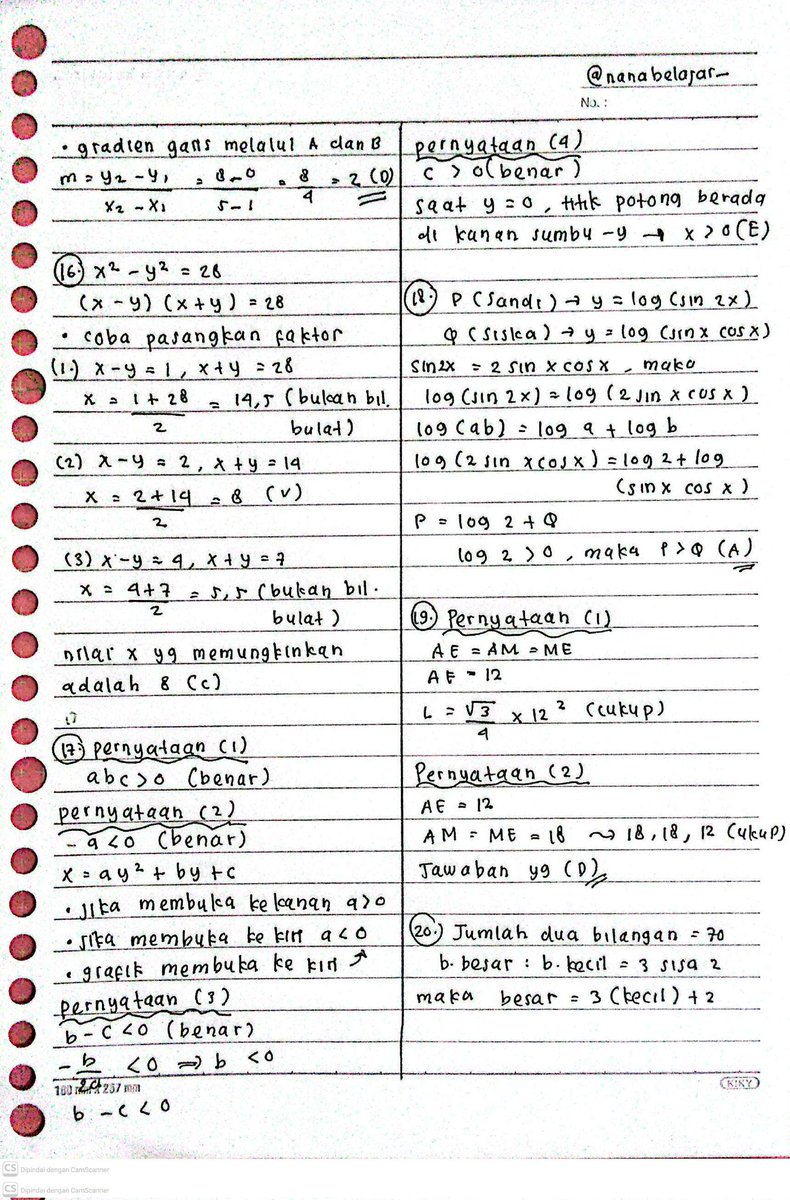 @nanabelajar_
No. :
• gradien garis melalui A dan B
m = y₂ - y₁ / x₂ - x₁ = 8 - 0 / 5 - 1 = 8/4 = 2 (D)
16.) x² - y² = 28
(x - y) (x + y) = 28
• coba pasangkan faktor
(1.) x - y = 1, x + y = 28
x = 1 + 28 / 2 = 14,5 (bukan bil. bulat)
(2) x - y = 2, x + y = 14
x = 2 + 14 / 2 = 8 (v)
(3) x - y = 4, x + y = 7
x = 4 + 7 / 2 = 5,5 (bukan bil. bulat)
nilai x yg memungkinkan
adalah 8 (c)
17.) pernyataan (1)
abc > 0 (benar)
pernyataan (2)
- a < 0 (benar)
x = ay² + by + c
• jika membuka ke kanan a > 0
• jika membuka ke kiri a < 0
• grafik membuka ke kiri ↗
pernyataan (3)
b - c < 0 (benar)
- b/2a < 0 ⇒ b < 0
b - c < 0
160 mm x 257 mm
pernyataan (4)
c > 0 (benar)
saat y = 0, titik potong berada
di kanan sumbu -y → x > 0 (E)
18.) P (Sandi) → y = log (sin 2x)
Q (Siska) → y = log (sin x cos x)
sin 2x = 2 sin x cos x, maka
log (sin 2x) = log (2 sin x cos x)
log (ab) = log a + log b
log (2 sin x cos x) = log 2 + log
(sin x cos x)
P = log 2 + Q
log 2 > 0, maka P > Q (A)
19.) Pernyataan (1)
AE = AM = ME
AE = 12
L = √3/4 x 12² (cukup)
Pernyataan (2)
AE = 12
AM = ME = 18 ~> 18, 18, 12 (cukup)
Jawaban yg (D)
20.) Jumlah dua bilangan = 70
b. besar : b. kecil = 3 sisa 2
maka besar = 3 (kecil) + 2
KIKY
CS Dipindai dengan CamScanner
CS Dipindai dengan CamScanner